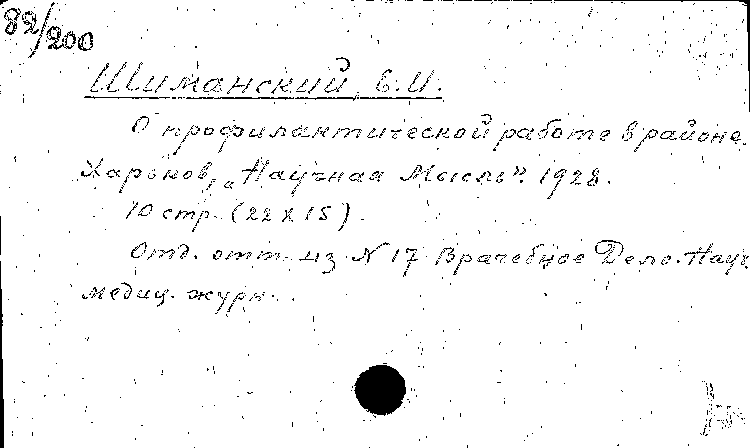 82/200
Шиманский, В.И.
О профилактической работе в районе.
Харьков, „Научная Мысль". 1928.
10 стр. (22 х 15).
Отд. отт. из N 17 Врачебное Дело. Науч.
медиц. журн.